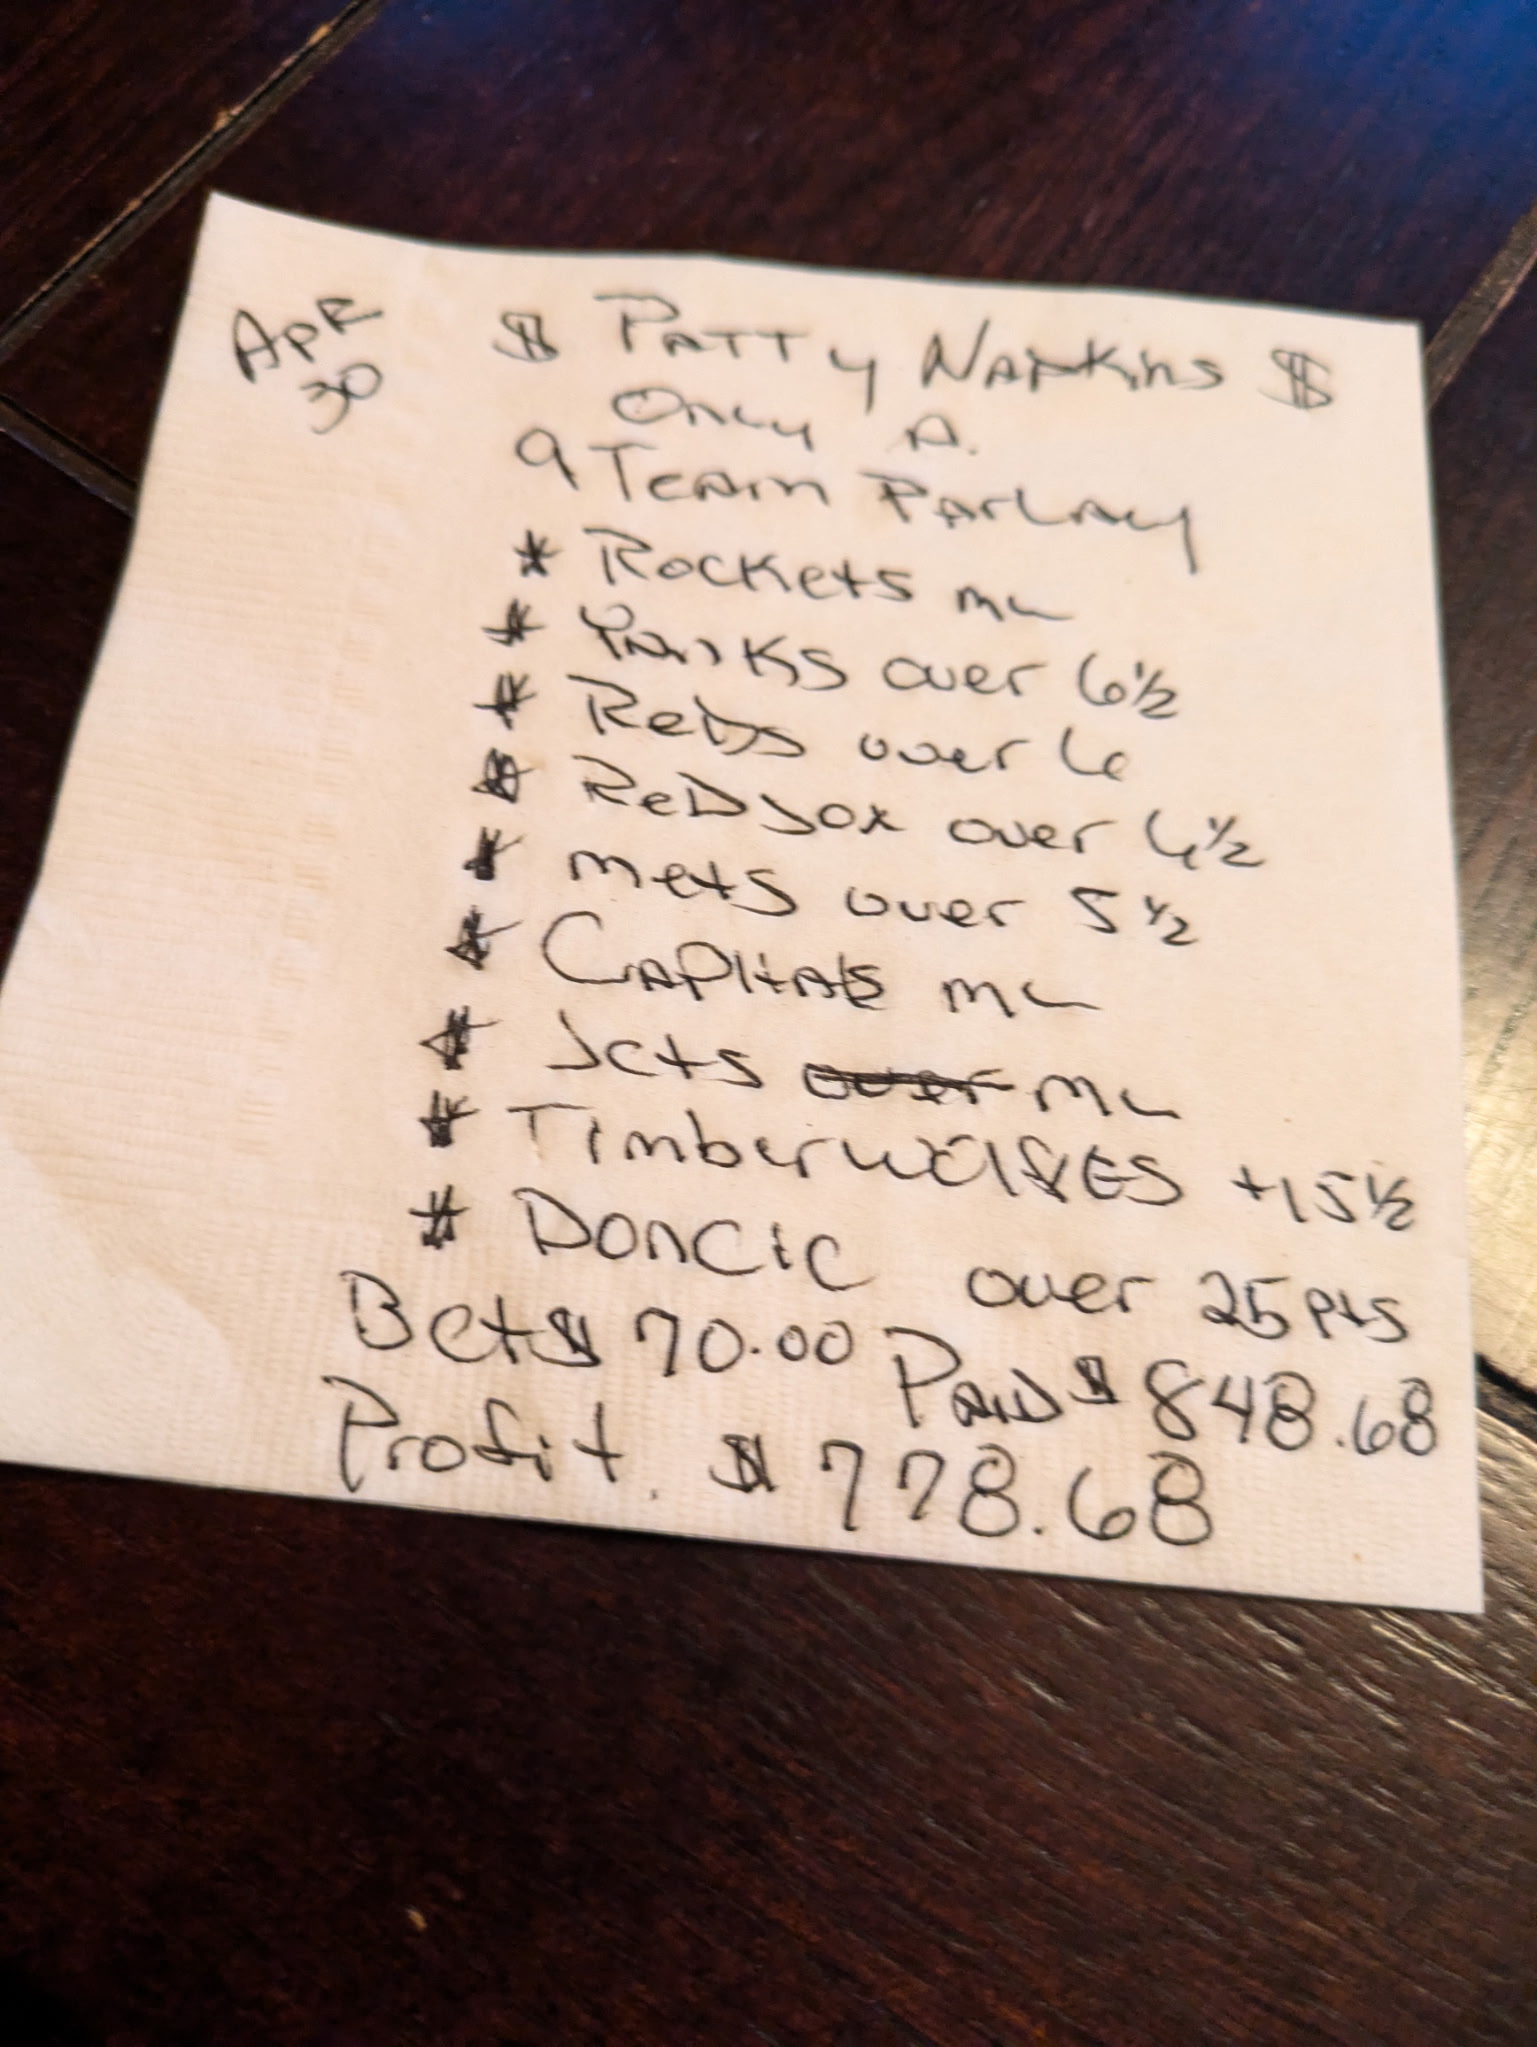 APR
30
$ PATTY NAPKiNS $
ONLY A.
9 TEAM PARLAY
* ROCKETS ML
* YANKS over 6 1/2
* REDS over 6
* REDSOX over 4 1/2
* METS over 5 1/2
* CAPITALS ML
* JETS over ML
* TIMBERWOLVES +15 1/2
* DONCIC over 25 PTS
BET $ 70.00 PAID $ 848.68
Profit. $ 778.68